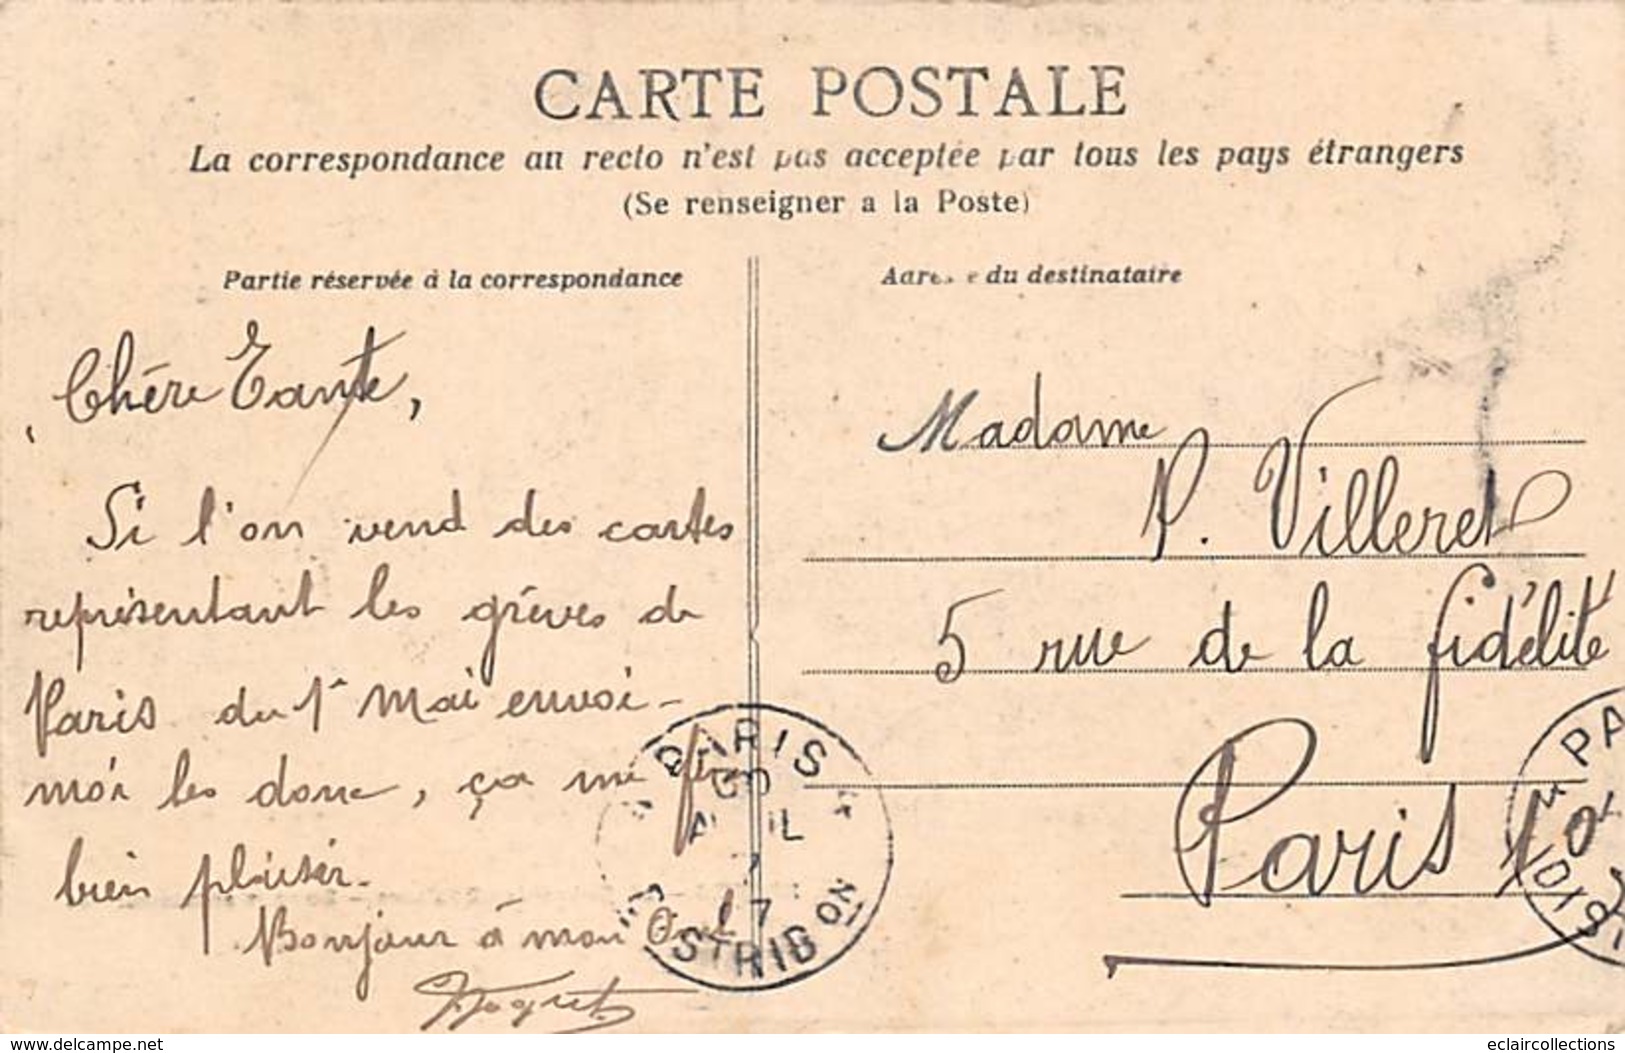 CARTE POSTALE
La correspondance au recto n'est pas acceptée par tous les pays étrangers
(Se renseigner a la Poste)
Partie réservée à la correspondance
Chère Tante,
Si l'on vend des cartes
représentant les grèves de
Paris du 1er Mai envoi-
moi les donc, ça me fera
bien plaisir.
Bonjour à mon Oncle
du destinataire
Madame
P. Villeret
5 rue de la fidélité
Paris 10
PARIS
30
AVRIL
07
DISTRIBON
PA
DIST
www.delcampe.net
eclaircollections